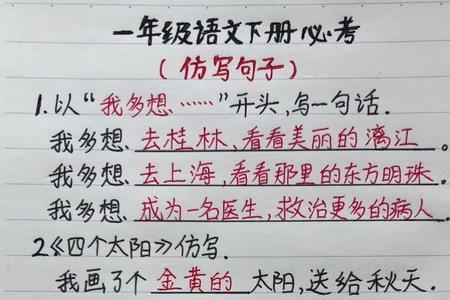 一年级语文下册必考
（仿写句子）
1.以“我多想……”开头,写一句话.
我多想、去桂林,看看美丽的漓江。
我多想、去上海,看看那里的东方明珠。
我多想、成为一名医生,救治更多的病人。
2.《四个太阳》仿写.
我画了个 金黄的 太阳,送给秋天.